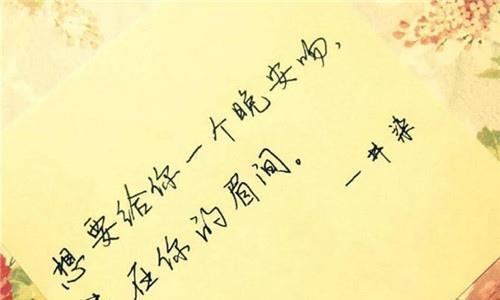 想要给你一个晚安吻，
在你的眉间。
一井染